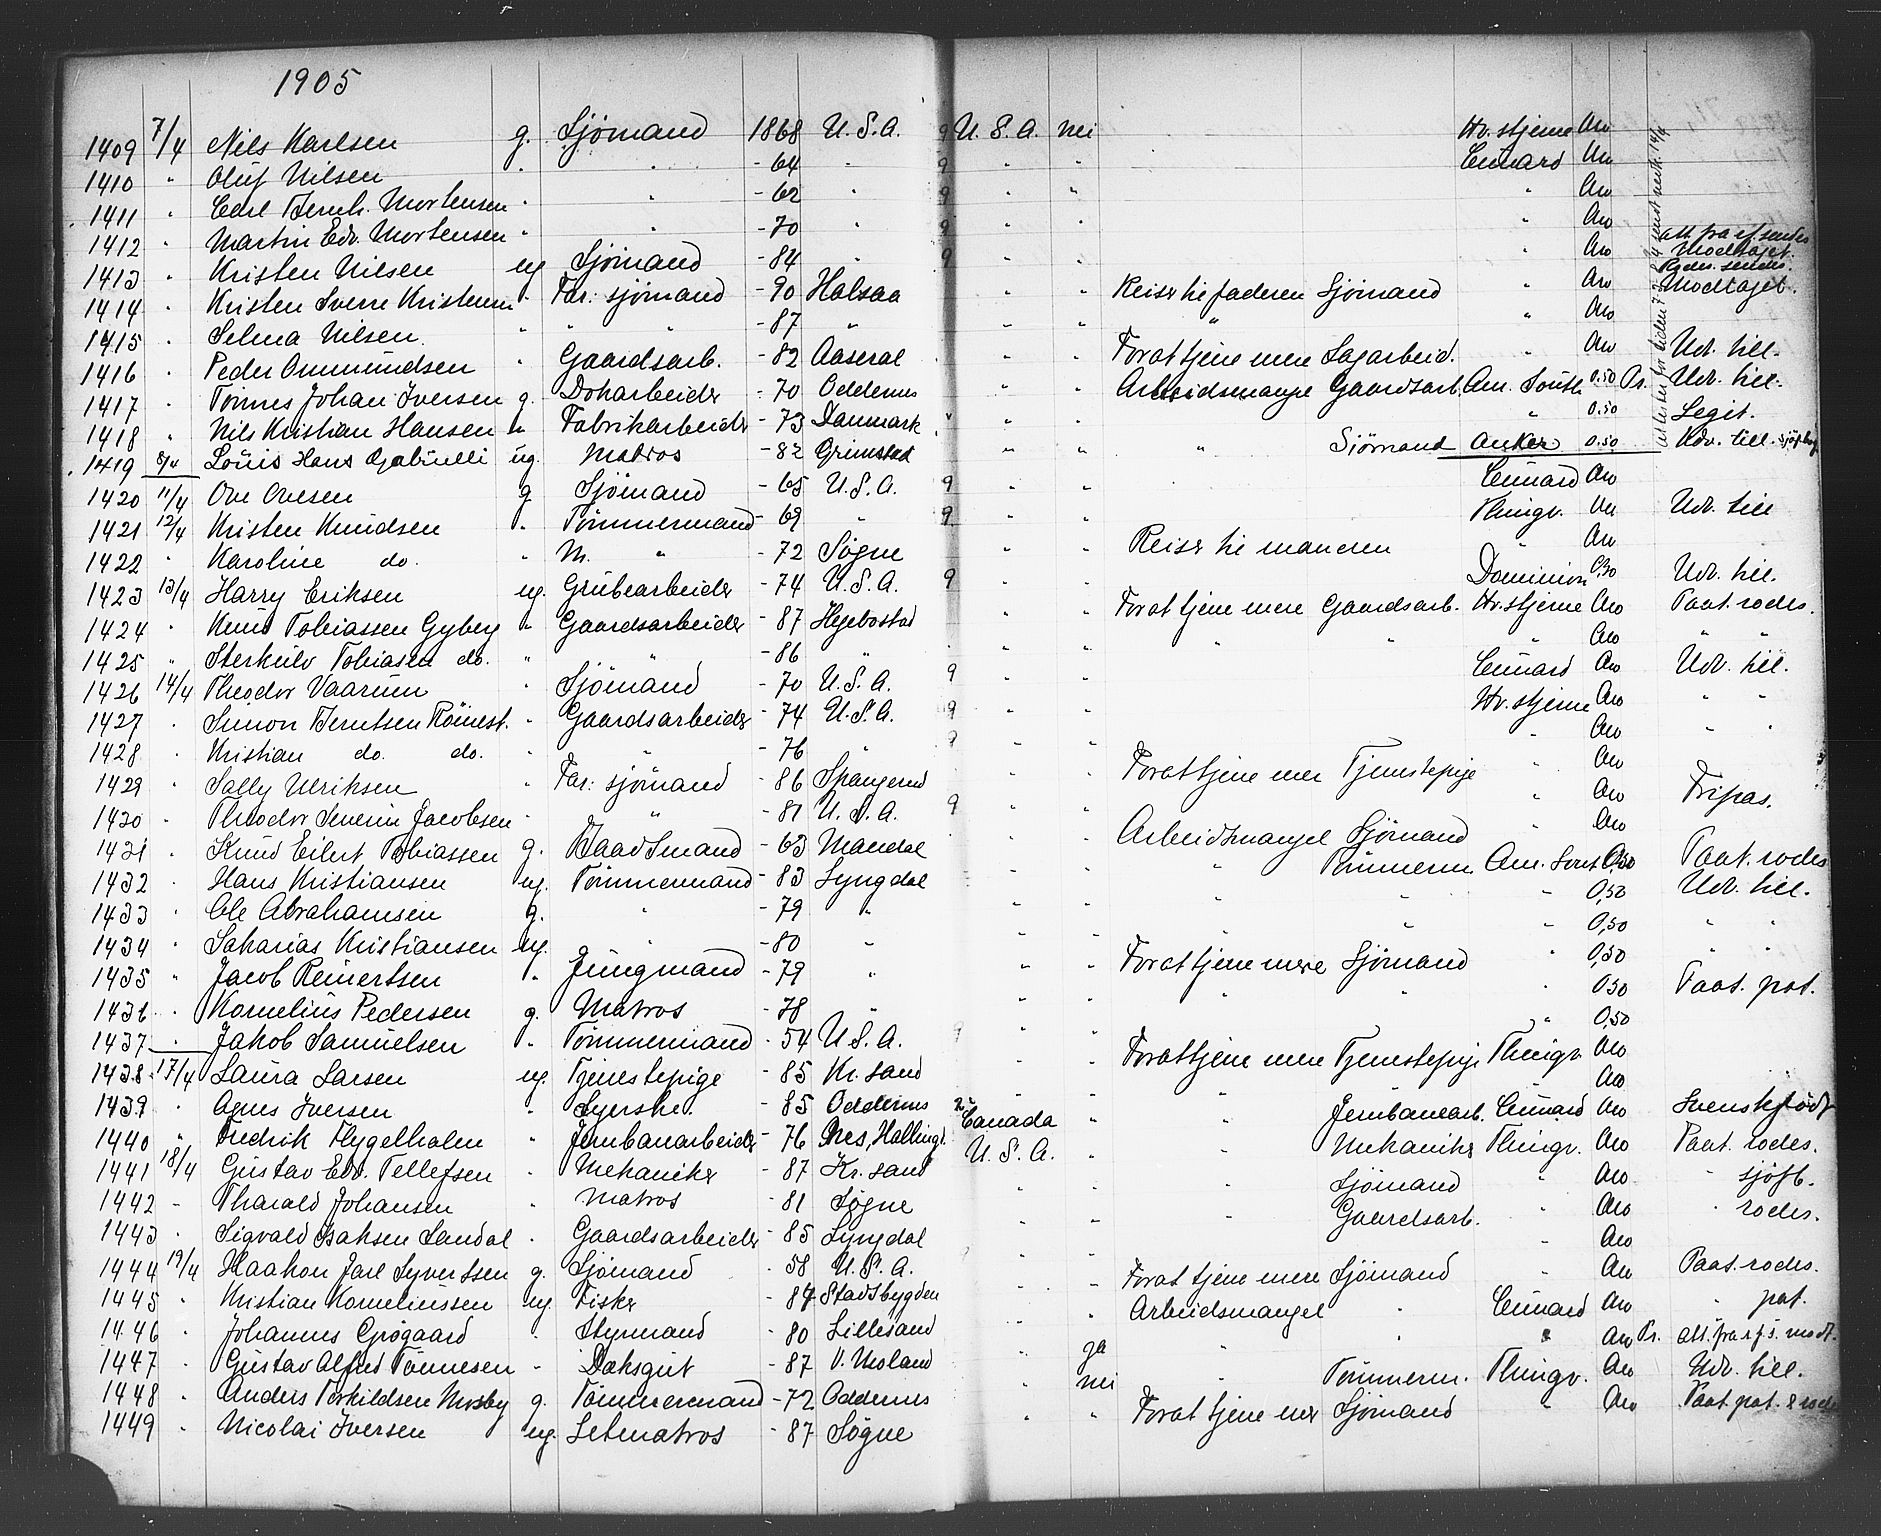 1905
1409 7/4 Nils Karlsen g. Sjömand 1868 U.S.A. 9 U.S.A. nei Hv. stjerne Aro
1410 " Oluf Nilsen " " - 64 " 9 " " Cunard Aro
1411 " Carl Bernh. Mortensen " " - 62 " 9 " " " Aro
1412 " Martin Edv. Mortensen " " - 70 " 9 " " " Aro
1413 " Kristen Nilsen ug Sjömand - 84 " 9 " " " Aro Modtaget.
1414 " Kristen Sverre Kristensen " Far: sjömand - 90 Halsaa " " Reiser til faderen Sjömand " Aro Modtaget.
1415 " Selma Nilsen " " " - 87 " " " " " Aro
1416 " Peder Ommundsen " Gaardsarb. - 82 Aaseral " " For at tjene mere Sagarbeid. " Aro Udv. till.
1417 " Tönnes Johan Iversen g. Dokarbeider - 70 Oddernes " " Arbeidsmangel Gaardsarb. Am. South. 0.50 Pr. Udv. till.
1418 " Nils Kristian Hansen " Fabrikarbeider - 73 Danmark " " " " 0.50 Legit.
1419 8/4 Louis Hans Gabrielli ug. Matros - 82 Grimstad " " " Sjömand Anker 0.50 Udv. till.
1420 11/4 Ove Ovesen g Sjömand - 65 U.S.A. 9 " " Cunard Aro
1421 12/4 Kristen Knudsen " Tömmermand - 69 " 9 " " Thingv. Aro Udv. till
1422 " Karoline do. " M. " - 72 Søgne " " Reiser til manden " Aro
1423 13/4 Harry Eriksen ug. Grubearbeider - 74 U.S.A. 9 " " Dominion 0,50 Udv. till.
1424 " Knud Tobiassen Gyberg " Gaardsarbeider - 87 Hegebostad " " For at tjene mere Gaardsarb. Hv. stjerne Aro Paat. rodes.
1425 " Sterkulv Tobiasen do. " " - 86 " " " " " Aro " "
1426 14/4 Theodor Vaarum " Sjömand - 70 U.S.A. 9 " " Cunard Aro Udv. till.
1427 " Simon Berntsen Röinest. " Gaardsarbeider - 74 U.S.A. 9 " " Hv. stjerne Aro " "
1428 " Kristian do. do. " " - 76 " 9 " " " Aro " "
1429 " Sally Ulriksen " Far: sjömand - 86 Spangereid " " For at tjene mer Tjenestepige " Aro
1430 " Theodor Severin Jacobsen " " - 81 U.S.A. 9 " " " Aro Fripas.
1431 " Knud Eilert Tobiassen g. Baadsmand - 63 Mandal " " Arbeidsmangel Sjömand " Aro
1432 " Hans Kristiansen ug. Tömmermand - 83 Lyngdal " " " Tömmerm. Am. South 0,50 Paat. rodes
1433 " Ole Abrahamsen g. " - 79 " " " " " " 0,50 Udv. till.
1434 " Sakarias Kristiansen ug. " - 80 " " " " " " 0,50 " "
1435 " Jacob Reinertsen " Jungmand - 79 " " " For at tjene mere Sjömand " 0,50 " "
1436 " Kornelius Pedersen g. Matros - 78 " " " " " " 0,50 Paat. pat.
1437 " Jakob Samuelsen " Tömmermand - 54 U.S.A. 9 " " " 0,50
1438 17/4 Laura Larsen ug. Tjenestepige - 85 Kr. sand " " For at tjene mere Tjenestepige Thingv. Aro
1439 " Agnes Iversen " Syerske. - 85 Oddernes " " " Aro
1440 " Fredrik Flygelholm " Jernbanarbeider - 76 Nes, Hallingd. Canada " " Jernbanearb. Cunard Aro Svenskfödt
1441 18/4 Gustav Edv. Tellefsen " Mekaniker - 87 Kr. sand U.S.A. " " Mekaniker Thingv. Aro Paat. rodes.
1442 - Tharald Johansen " Matros - 81 Søgne " " " Sjömand " Aro " sjöfb.
1443 " Sigvald Isaksen Sandal " Gaardsarbeider - 85 Lyngdal " " " Gaardsarb. " Aro " rodes.
1444 19/4 Haakon Jarl Syvertsen g. Sjömand - 58 U.S.A. " " " Aro
1445 " Kristian Korneliussen ug. Fisker - 84 Stadsbygden " " For at tjene mere Sjömand " Aro Paat. rodes.
1446 " Johannes Grögaard " Styrmand - 80 Lillesand " " Arbeidsmangel " Cunard Aro " pat.
1447 " Gustav Alfred Tönnesen - Daksgut - 87 V. Moland " ja " " " Aro Pr.
1448 " Anders Torkildsen Mosby g. Tömmermand - 72 Oddernes " nei " Tömmerm. Thingv. Aro Udv. till.
1449 " Nicolai Iversen ug. Letmatros - 87 Søgne " " For at tjene mer Sjömand " Aro Paat. pat. & rodes